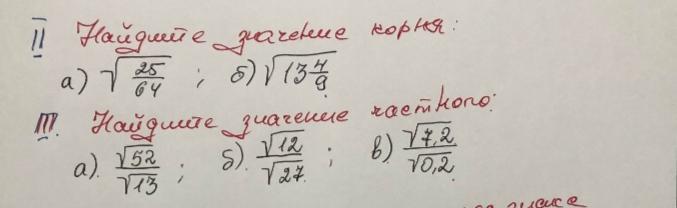 II Найдите значение корня:
а) √(25/64) ; б) √(13 4/9)
III. Найдите значение частного:
а). √52/√13 ; б). √12/√27 ; в) √7,2/√0,2
знака